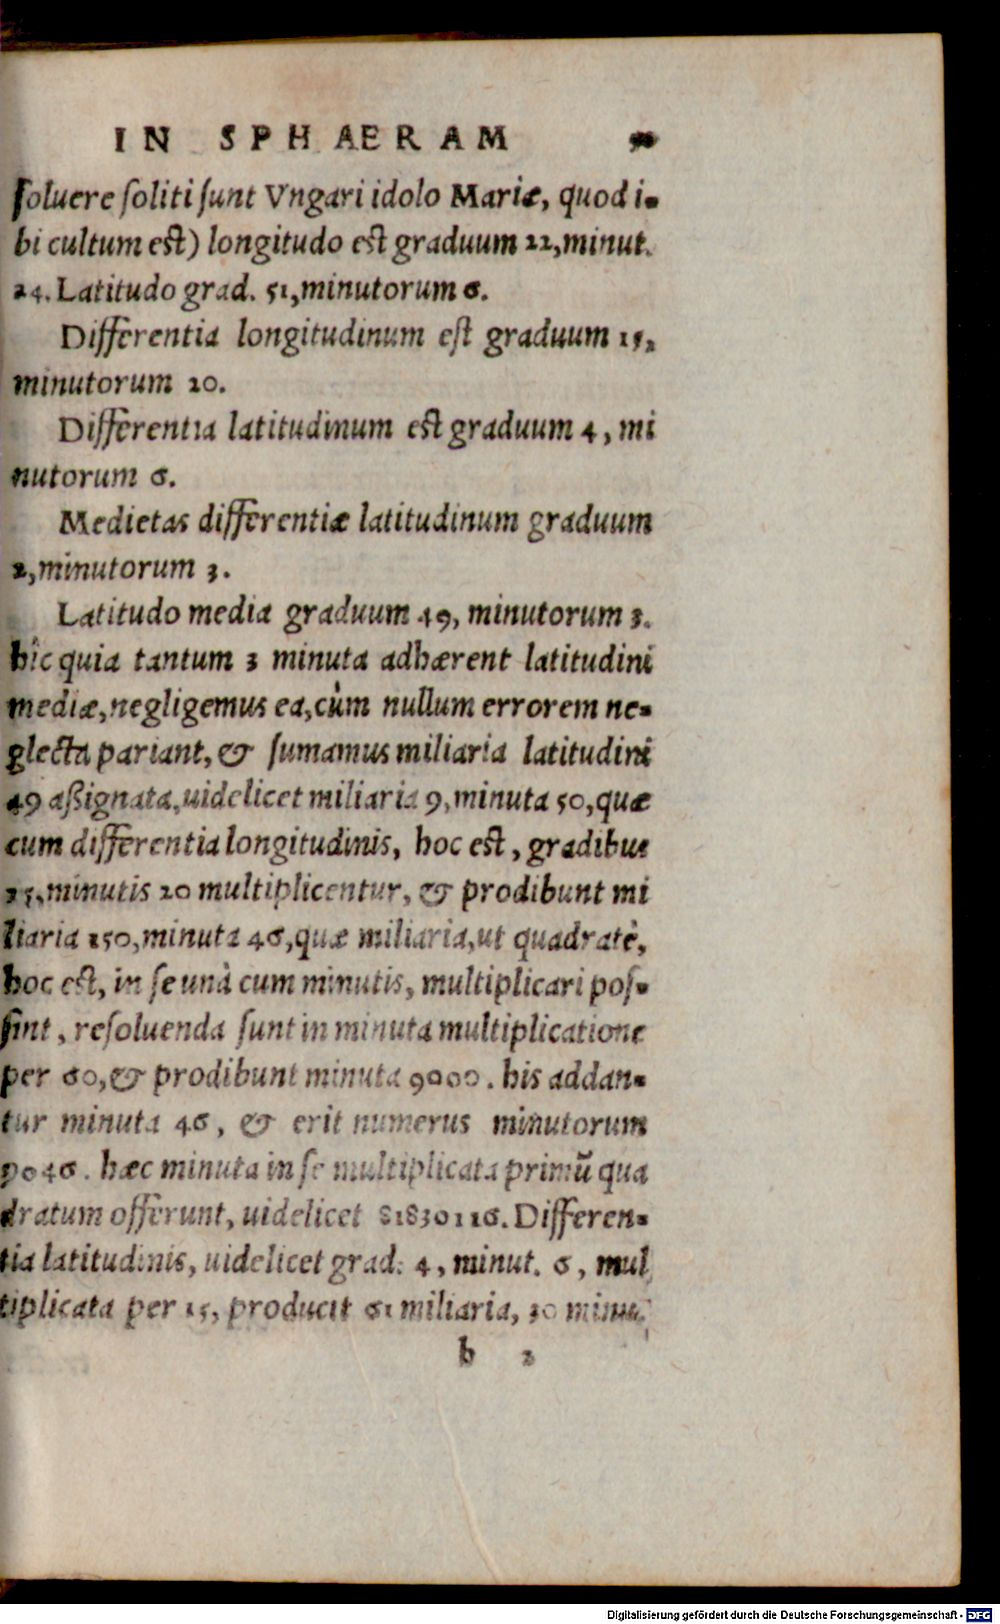 IN SPHAERAM
soluere soliti sunt Vngari idolo Mariæ, quod i-
bi cultum est) longitudo est graduum 22, minut.
24. Latitudo grad. 51, minutorum 6.
Differentia longitudinum est graduum 15,
minutorum 20.
Differentia latitudinum est graduum 4, mi
nutorum 6.
Medietas differentiæ latitudinum graduum
2, minutorum 3.
Latitudo media graduum 49, minutorum 3.
hîc quia tantum 3 minuta adhærent latitudini
mediæ, negligemus ea, cùm nullum errorem ne-
glecta pariant, & sumamus miliaria latitudini
49 aßignata, uidelicet miliaria 9, minuta 50, quæ
cum differentia longitudinis, hoc est, gradibus
15, minutis 20 multiplicentur, & prodibunt mi
liaria 150, minuta 46, quæ miliaria, ut quadratè,
hoc est, in se unà cum minutis, multiplicari pos-
sint, resoluenda sunt in minuta multiplicatione
per 60, & prodibunt minuta 9000. his addan-
tur minuta 46, & erit numerus minutorum
9046. hæc minuta in se multiplicata primũ qua
dratum offerunt, uidelicet 81830116. Differen-
tia latitudinis, uidelicet grad. 4, minut. 6, mul
tiplicata per 15, producit 61 miliaria, 30 minu.
b 2
Digitalisierung gefördert durch die Deutsche Forschungsgemeinschaft - DFG